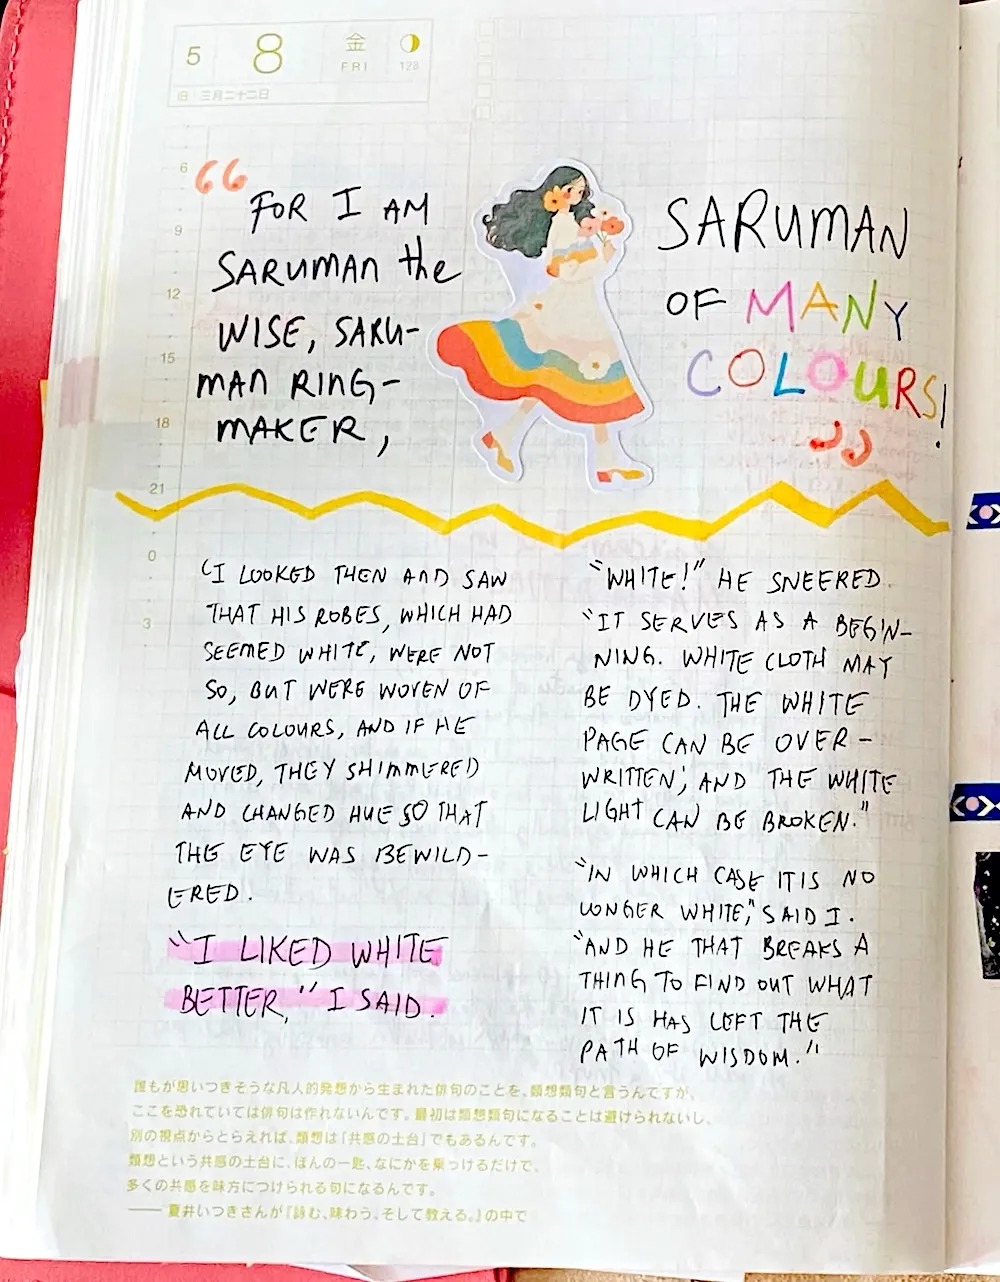 5 8 金 FRI 128
旧 三月二十二日
6
9
12
15
18
21
0
3
“FOR I AM
SARUMAN the
WISE, SARU-
MAN RING-
MAKER,
SARUMAN
OF MANY
COLOURS!”
“I LOOKED THEN AND SAW
THAT HIS ROBES, WHICH HAD
SEEMED WHITE, WERE NOT
SO, BUT WERE WOVEN OF
ALL COLOURS, AND IF HE
MOVED, THEY SHIMMERED
AND CHANGED HUE SO THAT
THE EYE WAS BEWILD-
ERED.
“I LIKED WHITE
BETTER,” I SAID.
“WHITE!” HE SNEERED.
“IT SERVES AS A BEGIN-
NING. WHITE CLOTH MAY
BE DYED. THE WHITE
PAGE CAN BE OVER-
WRITTEN; AND THE WHITE
LIGHT CAN BE BROKEN.”
“IN WHICH CASE IT IS NO
LONGER WHITE,” SAID I.
“AND HE THAT BREAKS A
THING TO FIND OUT WHAT
IT IS HAS LEFT THE
PATH OF WISDOM.”
誰もが思いつきそうな凡人的発想から生まれた俳句のことを、類想類句と言うんですが、
ここを恐れていては俳句は作れないんです。最初は類想類句になることは避けられないし、
別の視点からとらえれば、類想は「共感の土台」でもあるんです。
類想という共感の土台に、ほんの一匙、なにかを乗っけるだけで、
多くの共感を味方につけられる句になるんです。
—— 夏井いつきさんが『詠む、味わう、そして教える。』の中で